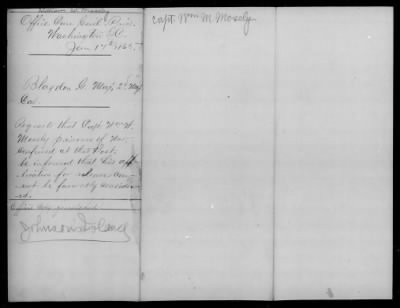 William W. Mosely
Office Com Genl Pris.
Washington D.C.
Jan 17th 1865
Blagden G. Maj. 2d Mass
Cav.
Requests that Capt. Wm W.
Mosely prisoner of War,
confined at that Post,
be informed that his app-
lication for release can-
not be favorably consider-
ed.
Johnson's Island
Capt. Wm M. Mosely